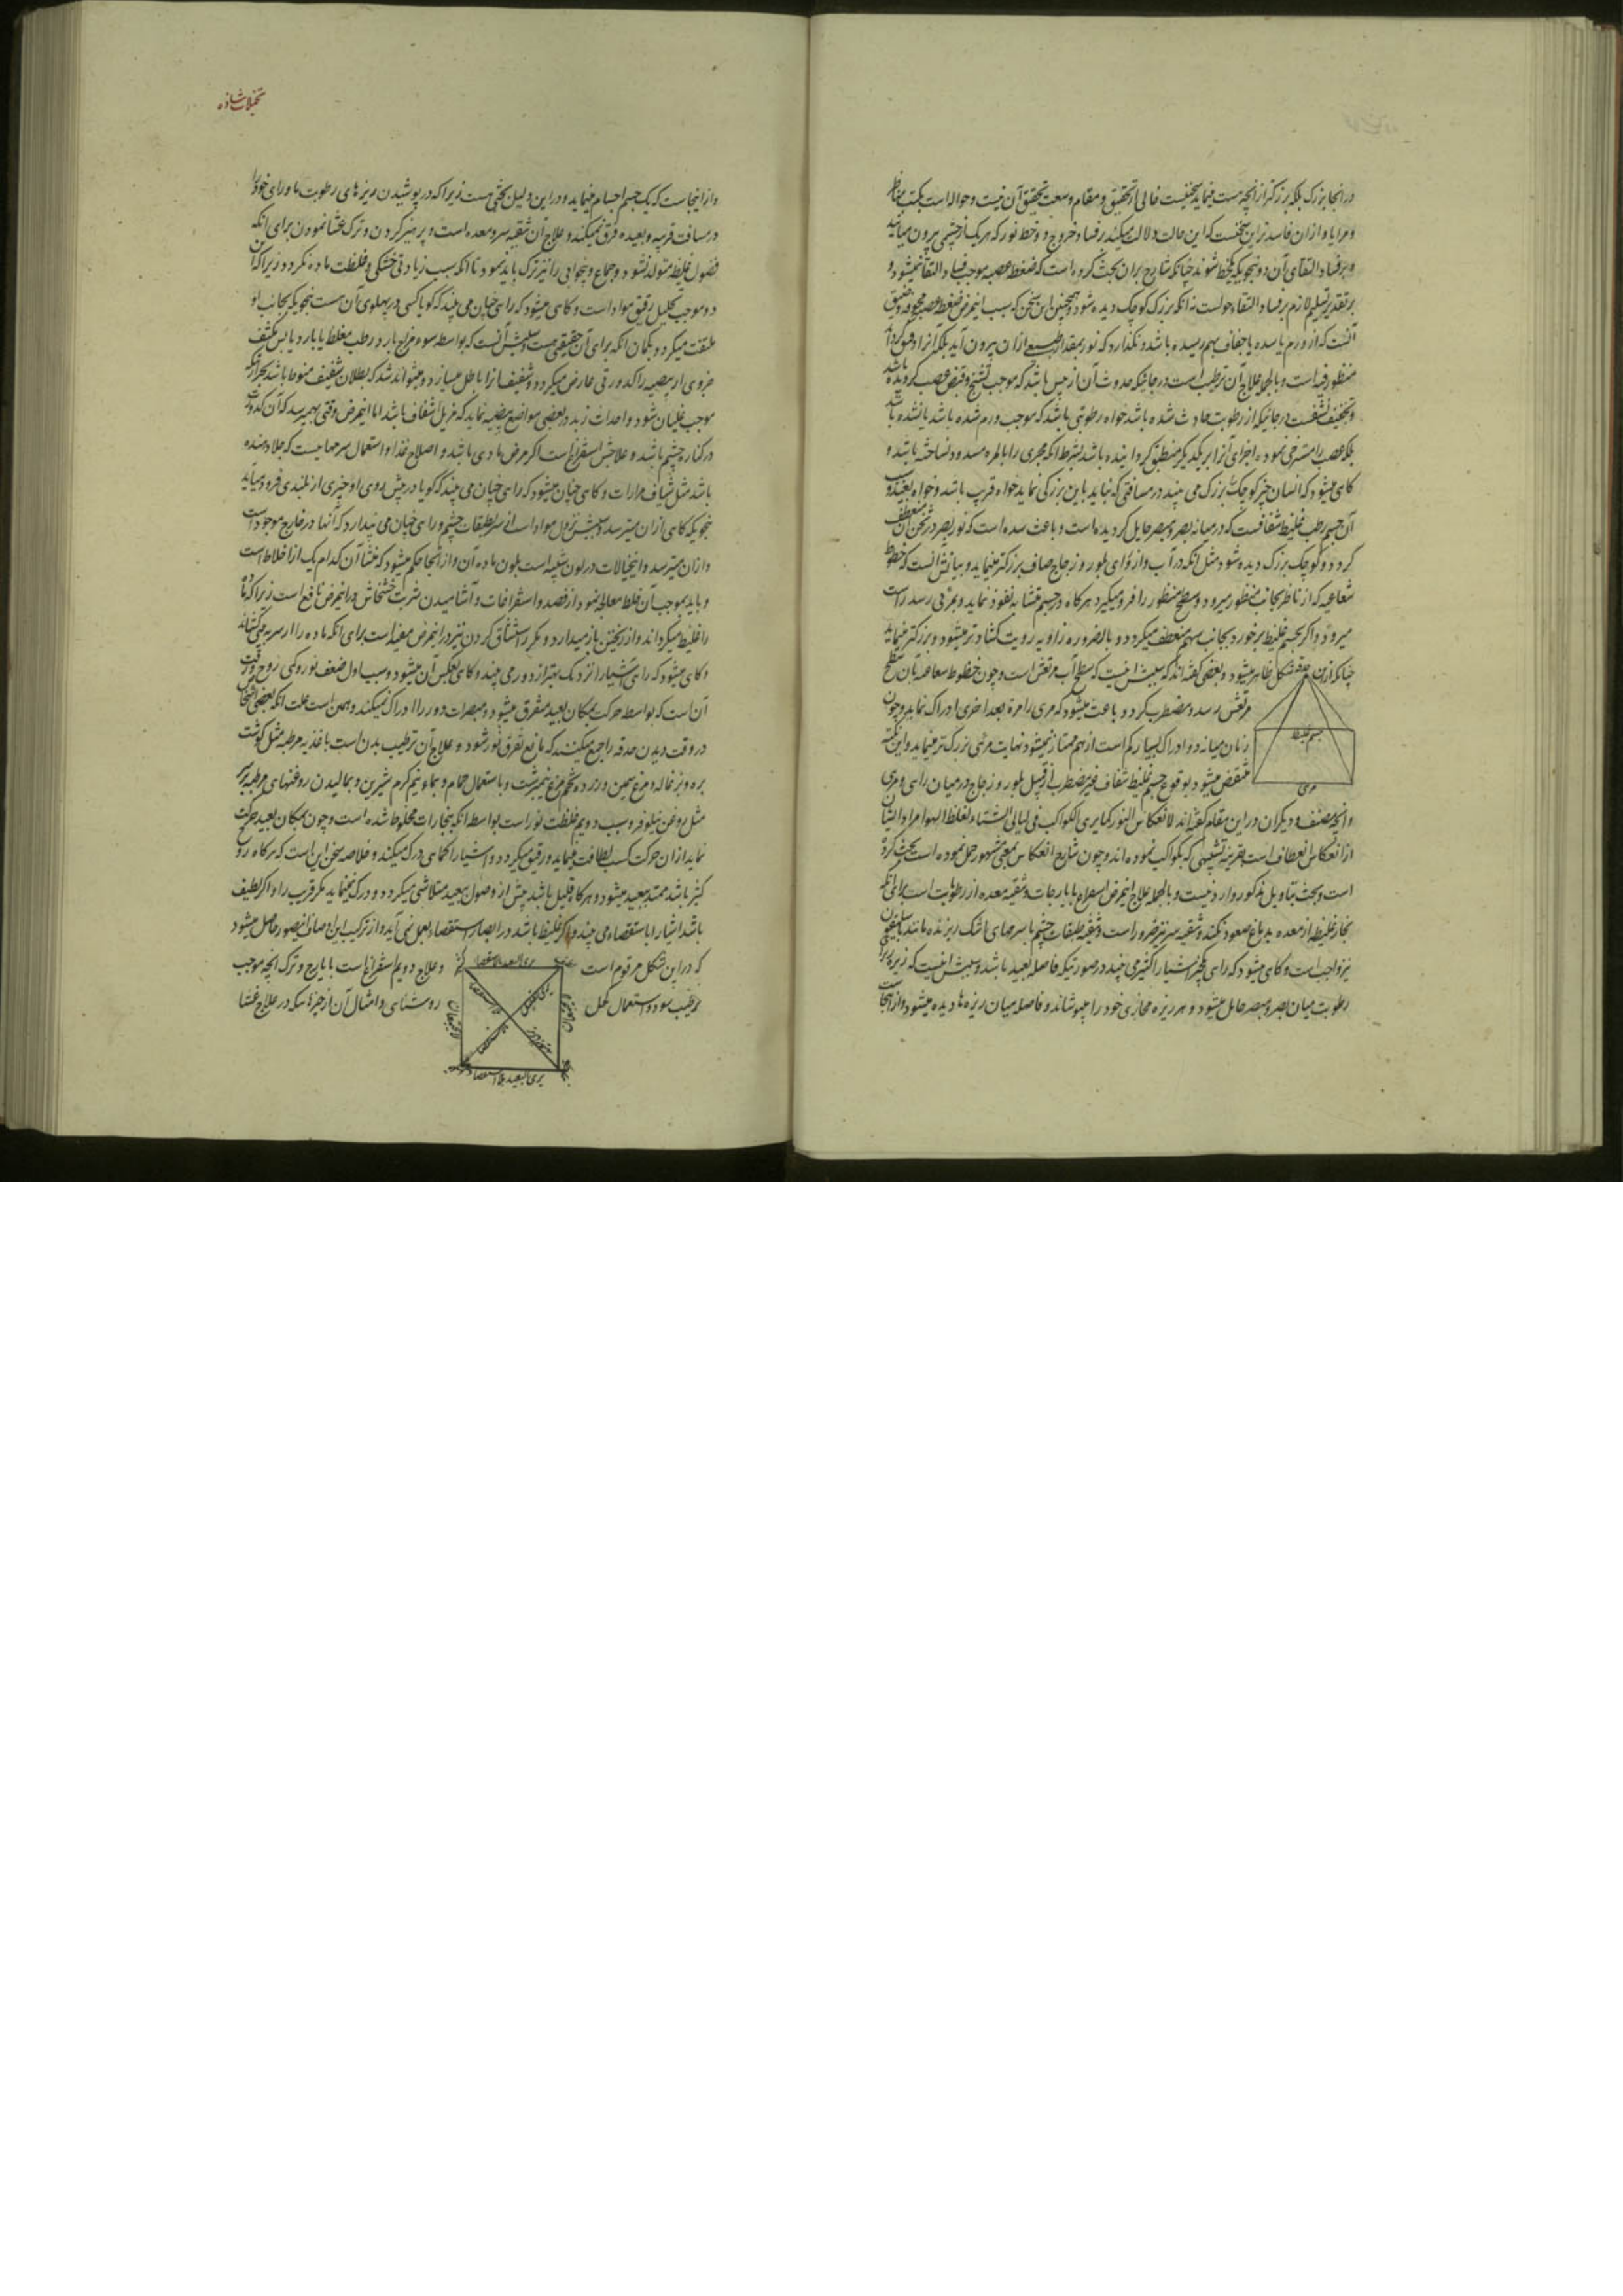 در انجا بزرک بلکه بزرکتر از انچه هست مینماید سخنیست خالی از تحقیق و مقام وسعت تحقیق آن نیست و حواله است بکتب مناظر
و مرایا و ازان فاسدتر این سخنست که این حالت دلالت میکند بر فساد خروج دو خط نور که هر یک از چشمی بیرون میاید
و بر فساد التقای آن دو بنحویکه یکخط شوند چنانکه شارح بران بحث کرده است که ضغط عصبه موجب فساد التقا نمیشود و
بر تقدیر تسلیم لازم بر فساد التقا حولست نه انکه بزرک کوچک دیده شود و همچنین این سخن که سبب اینمرض ضغط عصبه مجوفه و ضیق
آنست که از ورم یا سده یا جفاف بهم رسیده باشد و نکذارد که نور بمقدار طبیعی ازان بیرون آید بلکه آنرا دقیق کرداند
منظور فیه است و بالجمله علاج آن ترطیب است در جائیکه حدوث آن از یبس باشد که موجب تشنج و قبض عصب کردیده باشد
و تجفیف نشفست در جائیکه از رطوبت حادث شده باشد خواه رطوبتی باشد که موجب ورم شده باشد یا نشده باشد
بلکه عصب را مسترخی نموده اجزای آنرا بر یکدیکر منطبق کردانیده باشد بشرط انکه مجری را بالمره مسدود نساخته باشد و
کاهی میشود که انسان چیز کوچک بزرک می بیند در مسافتی که نباید باین بزرکی نماید خواه قریب باشد و خواه بعید و سبب
آن جسم رطب غلیظ شفافیست که در میانه بصر و مبصر حایل کردیده است و باعث شده است که نور بصر در ثخن آن منعطف
کردد و کوچک بزرک دیده شود مثل انکه در آب و از ورای بلور و زجاج صاف بزرکتر مینماید و بیانش انست که خطوط
شعاعیه که از ناظر بجانب منظور میرود و سطح منظور را فرو میکیرد هر کاه در جسم متشابه نفوذ نماید و بمرئی رسد راست
میرود و اکر بجسم غلیظ برخورد بجانب سهم منعطف میکردد و بالضروره زاویه رویت کشادتر میشود و بزرکتر مینماید
چنانکه ازین شکل ظاهر میشود و بعضی کفته اند که سببش اینست که سطح آب مرتعش است و چون خطوط شعاعیه بان سطح
حدقه
مرتعش رسد و مضطرب کردد و باعث میشود که مرئی را مرة بعد اخری ادراک نماید و چون
زمان میانه دو ادراک بسیار کم است از هم ممتاز نمیشود نهایت مرئی بزرکتر مینماید و این نکته
منتقض میشود بوقوع جسم غلیظ شفاف غیر مضطرب از قبیل بلور و زجاج در میان رائی و مرئی
جسم غلیظ
مرئی
و انچه مصنف و دیکران در این مقام کفته اند لانعکاس النور کما یری الکواکب فی لیالی الشتاء لغلظ الهوا مراد ایشان
از انعکاس انعطاف است بقرینه تشبیهی که بکواکب نموده اند و چون شارح انعکاس بمعنی مشهور حمل نموده است بحث کرده
است و بحث بتاویل مذکور وارد نیست و بالجمله علاج اینمرض اسهال بایارجات و تنقیه معده از رطوبت است برای انکه
بخار غلیظ از معده بدماغ صعود نکند و تنقیه سر نیز ضرور است و تنقیه طبقات چشم با سرمهای اشک ریزنده مانند باسلیقون
نیز واجب است و کاهی میشود که رای یکچیز اشیاء اکثر می بیند در صورتیکه فاصله بعید باشد و سببش اینست که ریزهای
رطوبت میان بصر و مبصر حایل میشود و هر ریزه محاذی خود را میپوشاند و فاصله میان ریزه ها دیده میشود و از انجاست
تخیلات شاذه
و از اینجاست که یک جسم اجسام مینماید و در این دلیل بحثی هست زیرا که در پوشیدن ریزهای رطوبت ماورای خود را
در مسافت قریبه و بعیده فرق نمیکند و علاج آن تنقیه سر و معده است و پرهیز کردن و ترک عشا نمودن برای انکه
فضول غلیظ متولد نشود و جماع و بیخوابی را نیز ترک باید نمود تا انکه سبب زیادتی خشکی و غلظت ماده نکردد زیرا که این
دو موجب تحلیل رقیق مواد است و کاهی میشود که رای چنان می بیند که کویا کسی در پهلوی آن هست بنحویکه بجانب او
ملتفت میکردد بکمان انکه برای آن حقیقتی هست و سببش آنست که بواسطه سوء مزاج بارد رطب مغلظ یا بارد یابس مکثف
جزوی از بیضیه را کدورتی عارض میکردد و شفیف انرا باطل میسازد و میتواند شد که بطلان شفیف منوط باشد بحرارتیکه
موجب غلیان شود و احداث زبد در بعضی مواضع بیضیه نماید که مزیل اشفاف باشد اما اینمرض وقتی بهمرسد که آن کدورت
در کنار چشم باشد و علاجش استفراغ است اکر مرض مادی باشد و اصلاح غذا و استعمال سرمها ییست که جلا دهنده
باشد مثل شیاف مرارات و کاهی چنان میشود که رای چنان می بیند که کویا در پیش روی او چیزی از بلندی فرود میآید
بنحویکه کاهی ازان میترسد و سببش نزول مواد است از سر بطبقات چشم و رای چنان می پندارد که آنها در خارج موجود است
و ازان میترسد و اینخیالات در لون شبیه است بلون ماده آن و از انجا حکم میشود که منشا آن کدام یک از اخلاط است
و باید بموجب آن خلط معالجه نمود از فصد و استفراغات و آشامیدن شربت خشخاش در اینمرض نافع است زیرا که ماده
را غلیظ میکرداند و از ریختن باز میدارد و مکرر استنشاق کردن نیز در اینمرض مفید است برای انکه ماده را از سر به بینی میکشاند
و کاهی میشود که رای اشیا را نزدیک بهتر از دور می بیند و کاهی بعکس آن میشود و سبب اول ضعف نور و کمی روح و رقت
آن است که بواسطه حرکت بمکان بعید متفرق میشود و مبصرات دور را ادراک نمیکند و همین است علت انکه بعضی اشخاص
در وقت دیدن حدقه را جمع میکنند که مانع تفرق نور شود و علاج آن ترطیب بدن است باغذیه مرطبه مثل کوشت
بره و بزغاله و مرغ سمین و زرده تخم مرغ نیمبرشت و باستعمال حمام و بماء نیم کرم شیرین و بمالیدن روغنهای مرطبه بر سر
مثل روغن نیلوفر و سبب دویم غلظت نور است بواسطه انکه ببخارات مخلوط شده است و چون بمکان بعید حرکت
نماید ازان حرکت کسب لطافت مینماید و رقیق میکردد و اشیا را کماهی درک میکند و خلاصه سخن این است که هر کاه روح
کثیر باشد ممتد ببعید میشود و هر کاه قلیل باشد پیش از وصول ببعید متلاشی میکردد و درک نمینماید مکر قریب را و اکر لطیف
باشد اشیا را باستقصاء می بیند و اکر غلیظ باشد در ابصار استقصاء بعمل نمی آید و از ترکیب این اوصاف اینصور حاصل میشود
که در این شکل مرقوم است
یری البعید بالاستقصا
و علاج دویم استفراغ است بایارج و ترک انچه موجب
ترطیب بود و استعمال کحل
روشنائی و امثال آن از چیزهائیکه در علاج غشا
یری البعید بلا استقصا